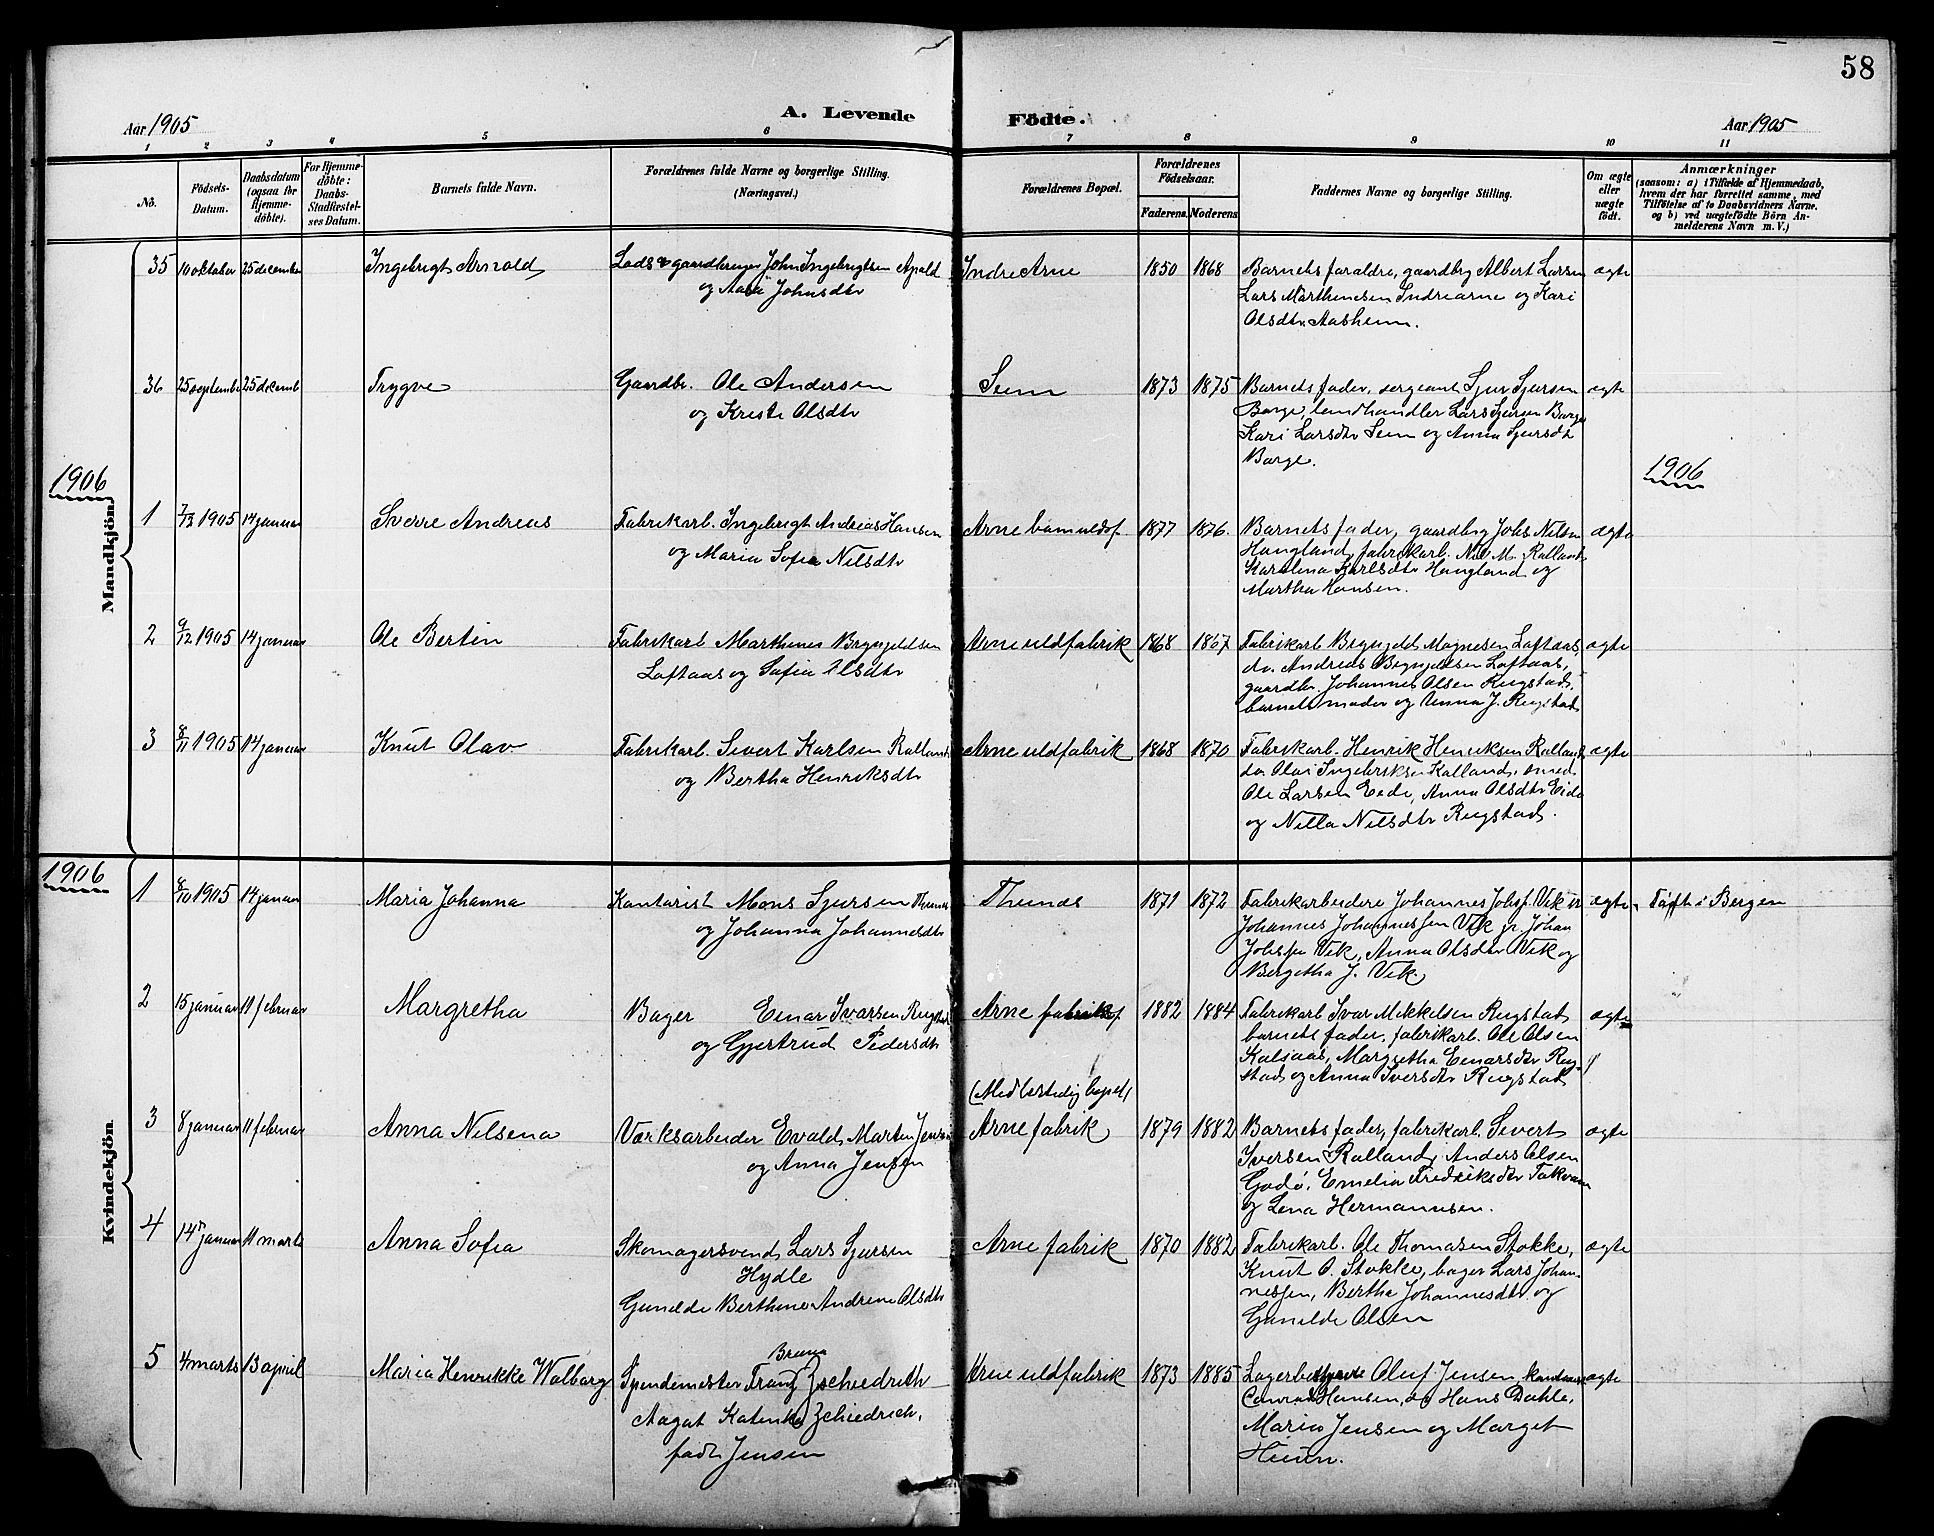 58
A. Levende Fødte.
Aar 1905
Aar 1905
1 2 3 4 5 6 7 8 9 10 11
No.
Födsels-Datum.
Daabsdatum (ogsaa for Hjemme-döbte).
For Hjemme-döbte: Daabs-Stadfæstel-ses Datum.
Barnets fulde Navn.
Forældrenes fulde Navne og borgerlige Stilling. (Næringsvei.)
Forældrenes Bopæl.
Forældrenes Födselsaar.
Faderens. Moderens
Faddernes Navne og borgerlige Stilling.
Om ægte eller uægte født.
Anmærkninger
(saasom: a) i Tilfælde af Hjemmedaab, hvem der har forrettet samme, med Tilföielse af to Daabsvidners Navne. og b) ved uægtefödte Börn An-melderens Navn m. V.)
35 10 oktober 25 december Ingebrigt Arnold
Lods & gaardbruger John Ingebrigtsen
og Aasa Johnsdtr
Indre Arne 1850 1868
Barnets foraldre, gaardbrg Albert Larsen
Lars Marthinesen Indrearne og Kari
Olsdtr. Aasheim.
ægte
36 25 september 25 decemb Trygve
Gaardbr. Ole Andersen
og Kriste Olsdtr
Seim 1873 1875
Barnets fader, sergeant Sjur Sjursen
Borge, landhandler Lars Sjursen Borge
Kari Larsdtr Seim og Anna Sjursdt
Borge.
ægte
1906
1906
Mandkjön.
1 1905 14 januar Sverre Andreas
Fabrikarb. Ingebrigt Andreas Hansen
og Maria Sofia Nilsdtr
Arne bomuldsf. 1877 1876.
Barnets fader, gaardbrg Johs Nilsen
Haugland, fabrikarb. Nils M. Ralland
Karolina Karlsdtr Haugland og
Martha Hansen.
ægte
2 9/12 1905 14 januar Ole Bertin
Fabrikarb Marthines Brynjeldsen
Loftaas og Sofia Olsdtr
Arne uldfabrik 1868 1867
Fabrikarb Brynjeld Magnesen Loftaas,
do. Andreas Brynjelsen Loftaas,
gaardbr. Johannes Olsen Rugstad,
barnets moder og Anna J. Rugstad
ægte
3 8/11 1905 14 januar Knut Olav
Fabrikarb. Sivert Karlsen Ralland
og Bertha Henriksdtr
Arne uldfabrik 1868 1870
Fabrikarb. Henrik Henriksen Ralland,
do. Olai Ingebriksen Kalland, smed
Ole Larsen Eide, Anna Olsdtr Eide
og Nilla Nilsdtr Rugstad.
ægte
1906
Kvindekjön.
1 8/10 1905 14 januar Maria Johanna
Kontorist Mons Sjursen Thunes
og Johanna Johannesdtr
Thunes 1871 1872
Fabrikarbeidere Johannes Johsf. Vik
Johannes Johannessen Vik jr. Johan
Johssen Vik, Anna Olsdtr Vik og
Bergetha J. Vik.
ægte
i Bergen
2 15 januar 11 februar Margretha
Bager Einar Ivarsen Rugstad
og Gjertrud Pedersdtr
Arne fabrikf 1882 1884
Fabrikarb Ivar Mikkelsen Rugstad
barnets fader, fabrikarb. Ole Olsen
Kalsaas, Margretha Einarsdtr Rug-
stad og Anna Iversdtr Rugstad
ægte
3 8 januar 11 februar Anna Nilsena
Værksarbeider Evald Marten Jensen
og Anna Jensen
(Midlertidig bopæl)
Arne fabrik 1879 1882
Barnets fader, fabrikarb. Sivert
Iversen Ralland, Anders Olsen
Godø, Emelia Fredriksdtr Takvam
og Lena Hermannsen.
ægte
4 14 januar 11 marts Anna Sofia
Skomagersvend Lars Sjursen
Hydle
Gunilde Berthine Andrine Olsdtr
Arne fabrik 1870 1882
Fabrikarb. Ole Thomasen Stokke,
Knut O. Stokke, bager Lars Johan-
nessen, Bertha Johannesdtr. og
Gunilde Olsen
ægte
5 4 marts 13 april Maria Henrikke Walborg
Bruno
Spindemester Franz Zschiedrich
Aagot Katinka Zschiedrich,
født Jensen
Arne uldfabrik 1873 1885
Lagerbestyrer Oluf Jensen,
Conrad Hansen, og Hans Dahle,
Maria Jensen og Marget
Hiun.
ægte